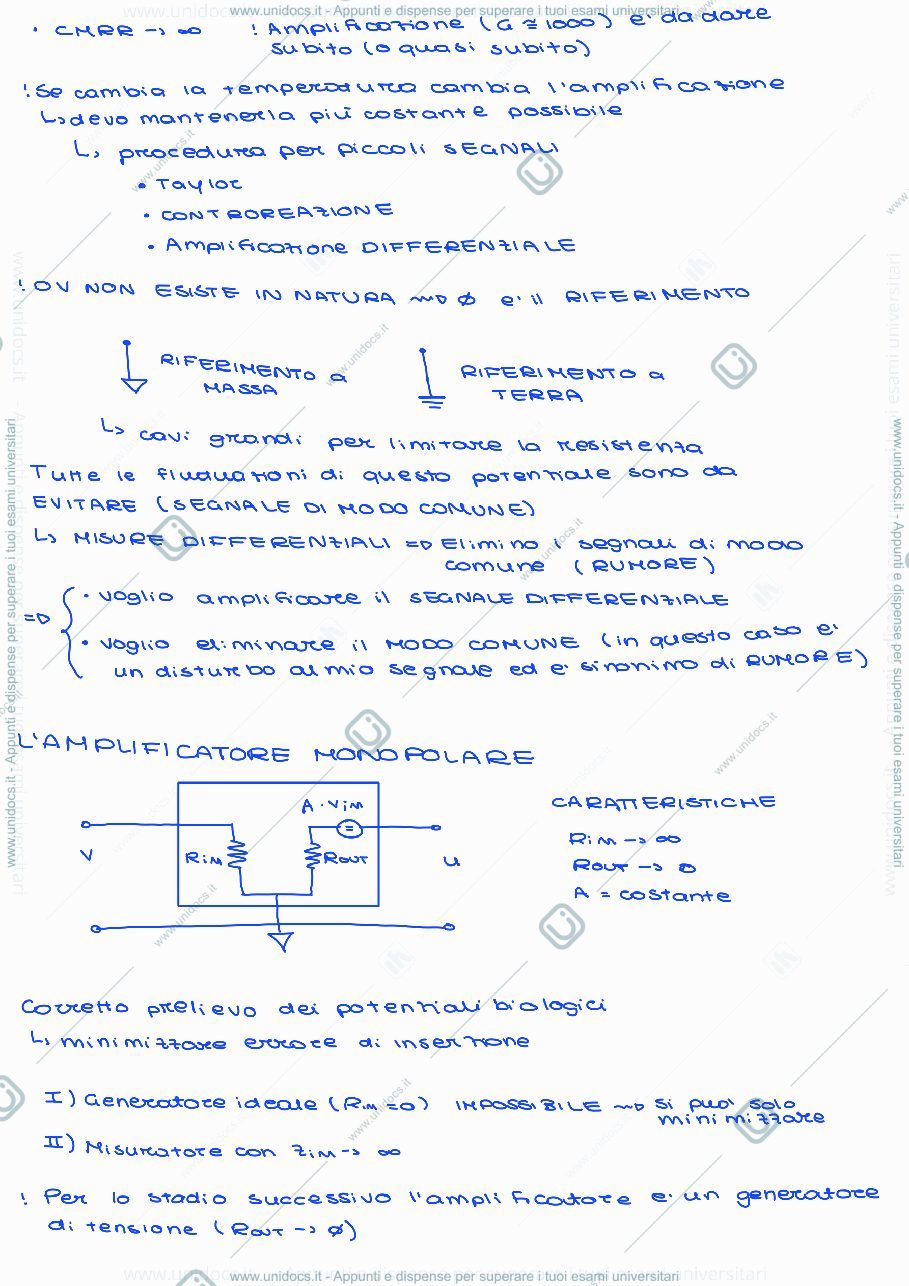 www.unidocs.it - Appunti e dispense per superare i tuoi esami universitari
• CMRR -> ∞ ! Amplificazione (G ≅ 1000) e' da dare
subito (o quasi subito)
! Se cambia la temperatura cambia l'amplificazione
↳ devo mantenerla più costante possibile
↳ procedura per piccoli SEGNALI
• Taylor
• CONTROREAZIONE
• Amplificazione DIFFERENZIALE
! 0V NON ESISTE IN NATURA ~~D Ø e' il RIFERIMENTO
RIFERIMENTO a
MASSA
RIFERIMENTO a
TERRA
↳ cavi grandi per limitare la resistenza
Tutte le fluttuazioni di questo potenziale sono da
EVITARE (SEGNALE DI MODO COMUNE)
↳ MISURE DIFFERENZIALI => Elimino i segnali di modo
comune (RUMORE)
=> { • voglio amplificare il SEGNALE DIFFERENZIALE
• voglio eliminare il MODO COMUNE (in questo caso e'
un disturbo al mio segnale ed e' sinonimo di RUMORE)
L'AMPLIFICATORE MONOPOLARE
A · Vin
V Rin Rout u
CARATTERISTICHE
Rin -> ∞
Rout -> 0
A = costante
Corretto prelievo dei potenziali biologici
↳ minimizzare errore di inserzione
I) Generatore ideale (Rin = 0) IMPOSSIBILE ~~D si puo' solo
minimizzare
II) Misuratore con Zin -> ∞
! Per lo stadio successivo l'amplificatore e' un generatore
di tensione (Rout -> Ø)
www.unidocs.it - Appunti e dispense per superare i tuoi esami universitari